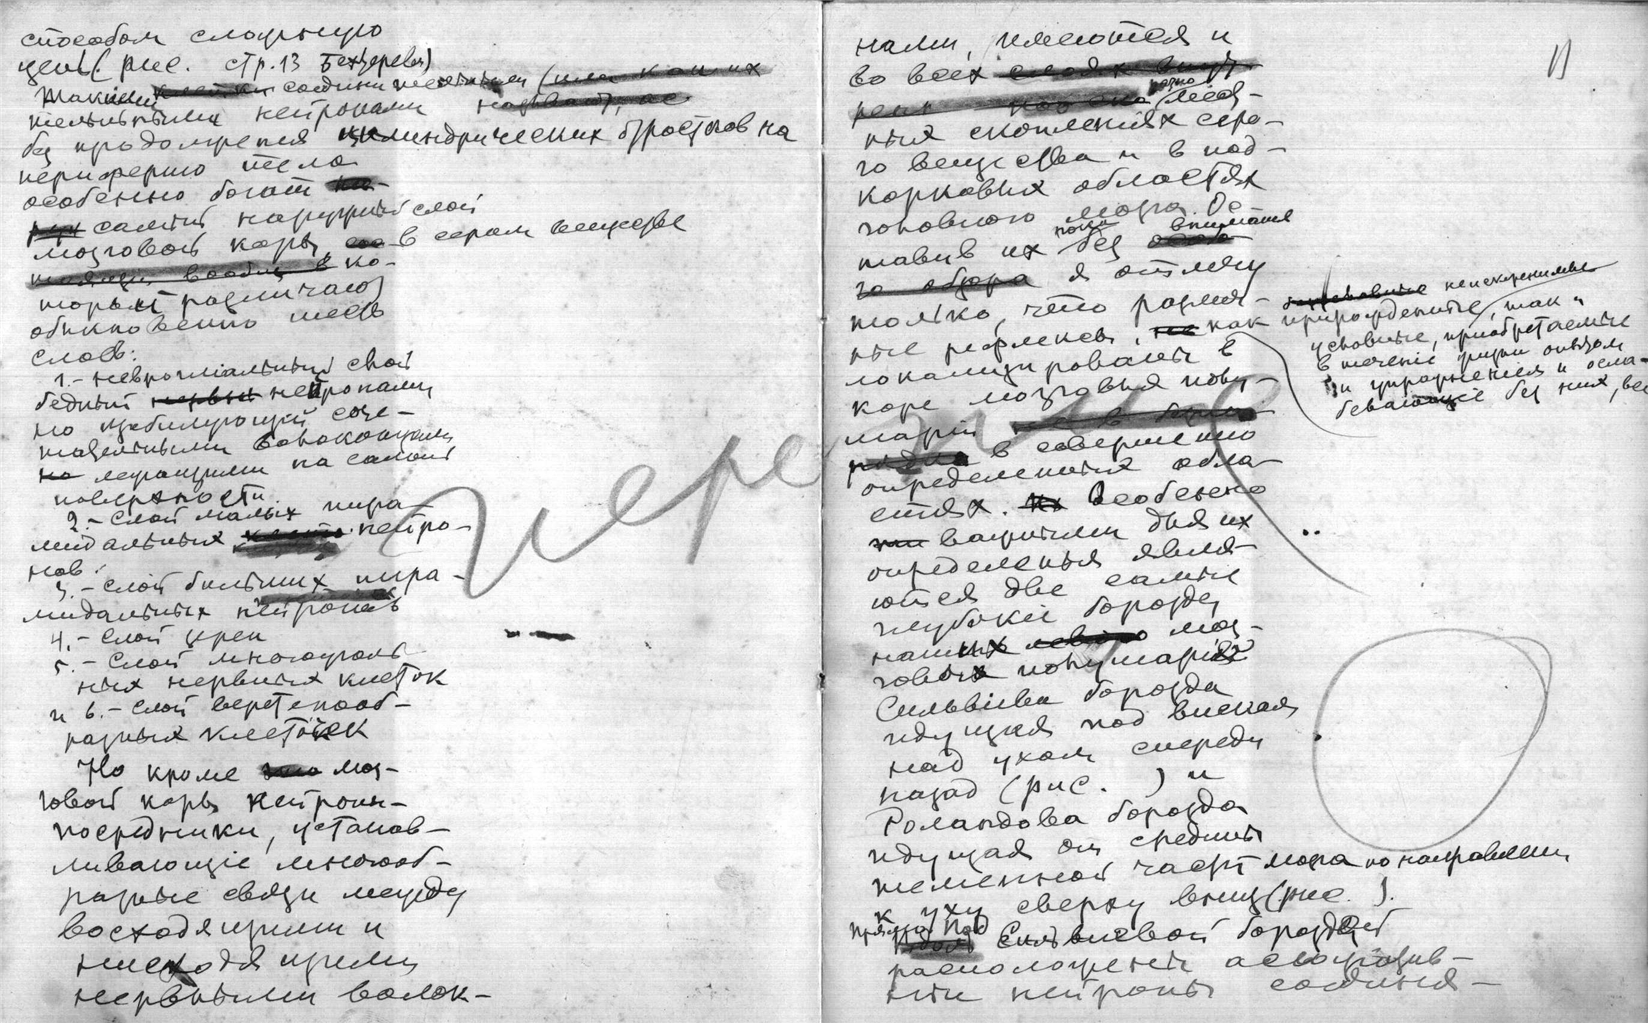 способом сложную
цепь (рис. стр. 13 Бехтерева)
Такими соединительными (или как их
тельными нейронами называют, ас
без продолжения цилиндрических отростков на
периферию тела
особенно богат
самый наружный слой
мозговой коры, в сером веществе
вообще в ко-
торый различают
обыкновенно шесть
слоев:
1.- невроглиальный слой
бедный нейронами
но изобилующий
волоконцами
лежащими на самой
поверхности
2.- Слой малых пира-
мидальных нейро-
нов.
3.- слой больших пира-
мидальных нейронов
4.- Слой зерен
5.- Слой многоуголь
ных нервных клеток
и 6.- Слой веретенооб-
разных клеточек
Но кроме моз-
говой коры нейроны-
посредники, устанав-
ливающие многооб-
разные связи между
восходящими и
нисходящими
нервными волок-
11
нами, имеются и
во всех слоях внут-
ных скоплениях серо-
го вещества и в под-
корковых областях
головного мозга. Ос
тавив их пока без внимания
го обзора я отмечу
только, что разли-
ные рефлексы, как
неискоренимые
прирожденные, так и
условные, приобретаемые
в течение жизни опытом
и упражнением и осла-
бевающие без них, все
локализированы в
коре мозговых полу-
шарий
в совершенно
определенных обла-
стях. Особенно
важными для их
определения явля-
ются две самые
глубокие борозды
наших моз-
говых полушарий
Сильвиева борозда
идущая под виском
над ухом спереди
назад (рис. ) и
Роландова борозда
идущая от средины
теменной части мозга по направлению
к уху сверху вниз (рис. ).
Прямо под Сильвиевой бороздой
расположены ассоциатив-
ные нейроны соединя-